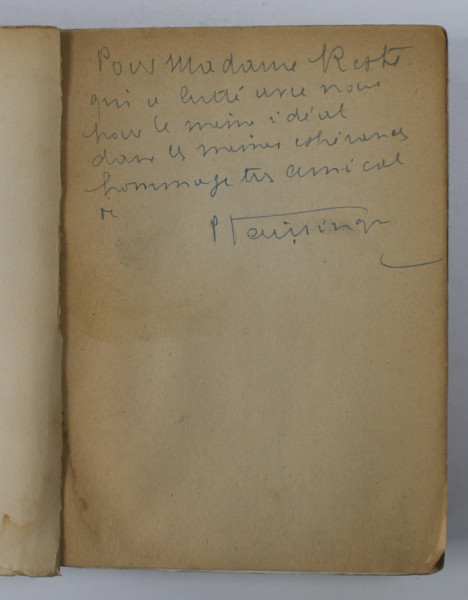 Pour Madame
qui a lutté avec nous
pour le même idéal
dans les mêmes espérances
hommage très amical
de
P